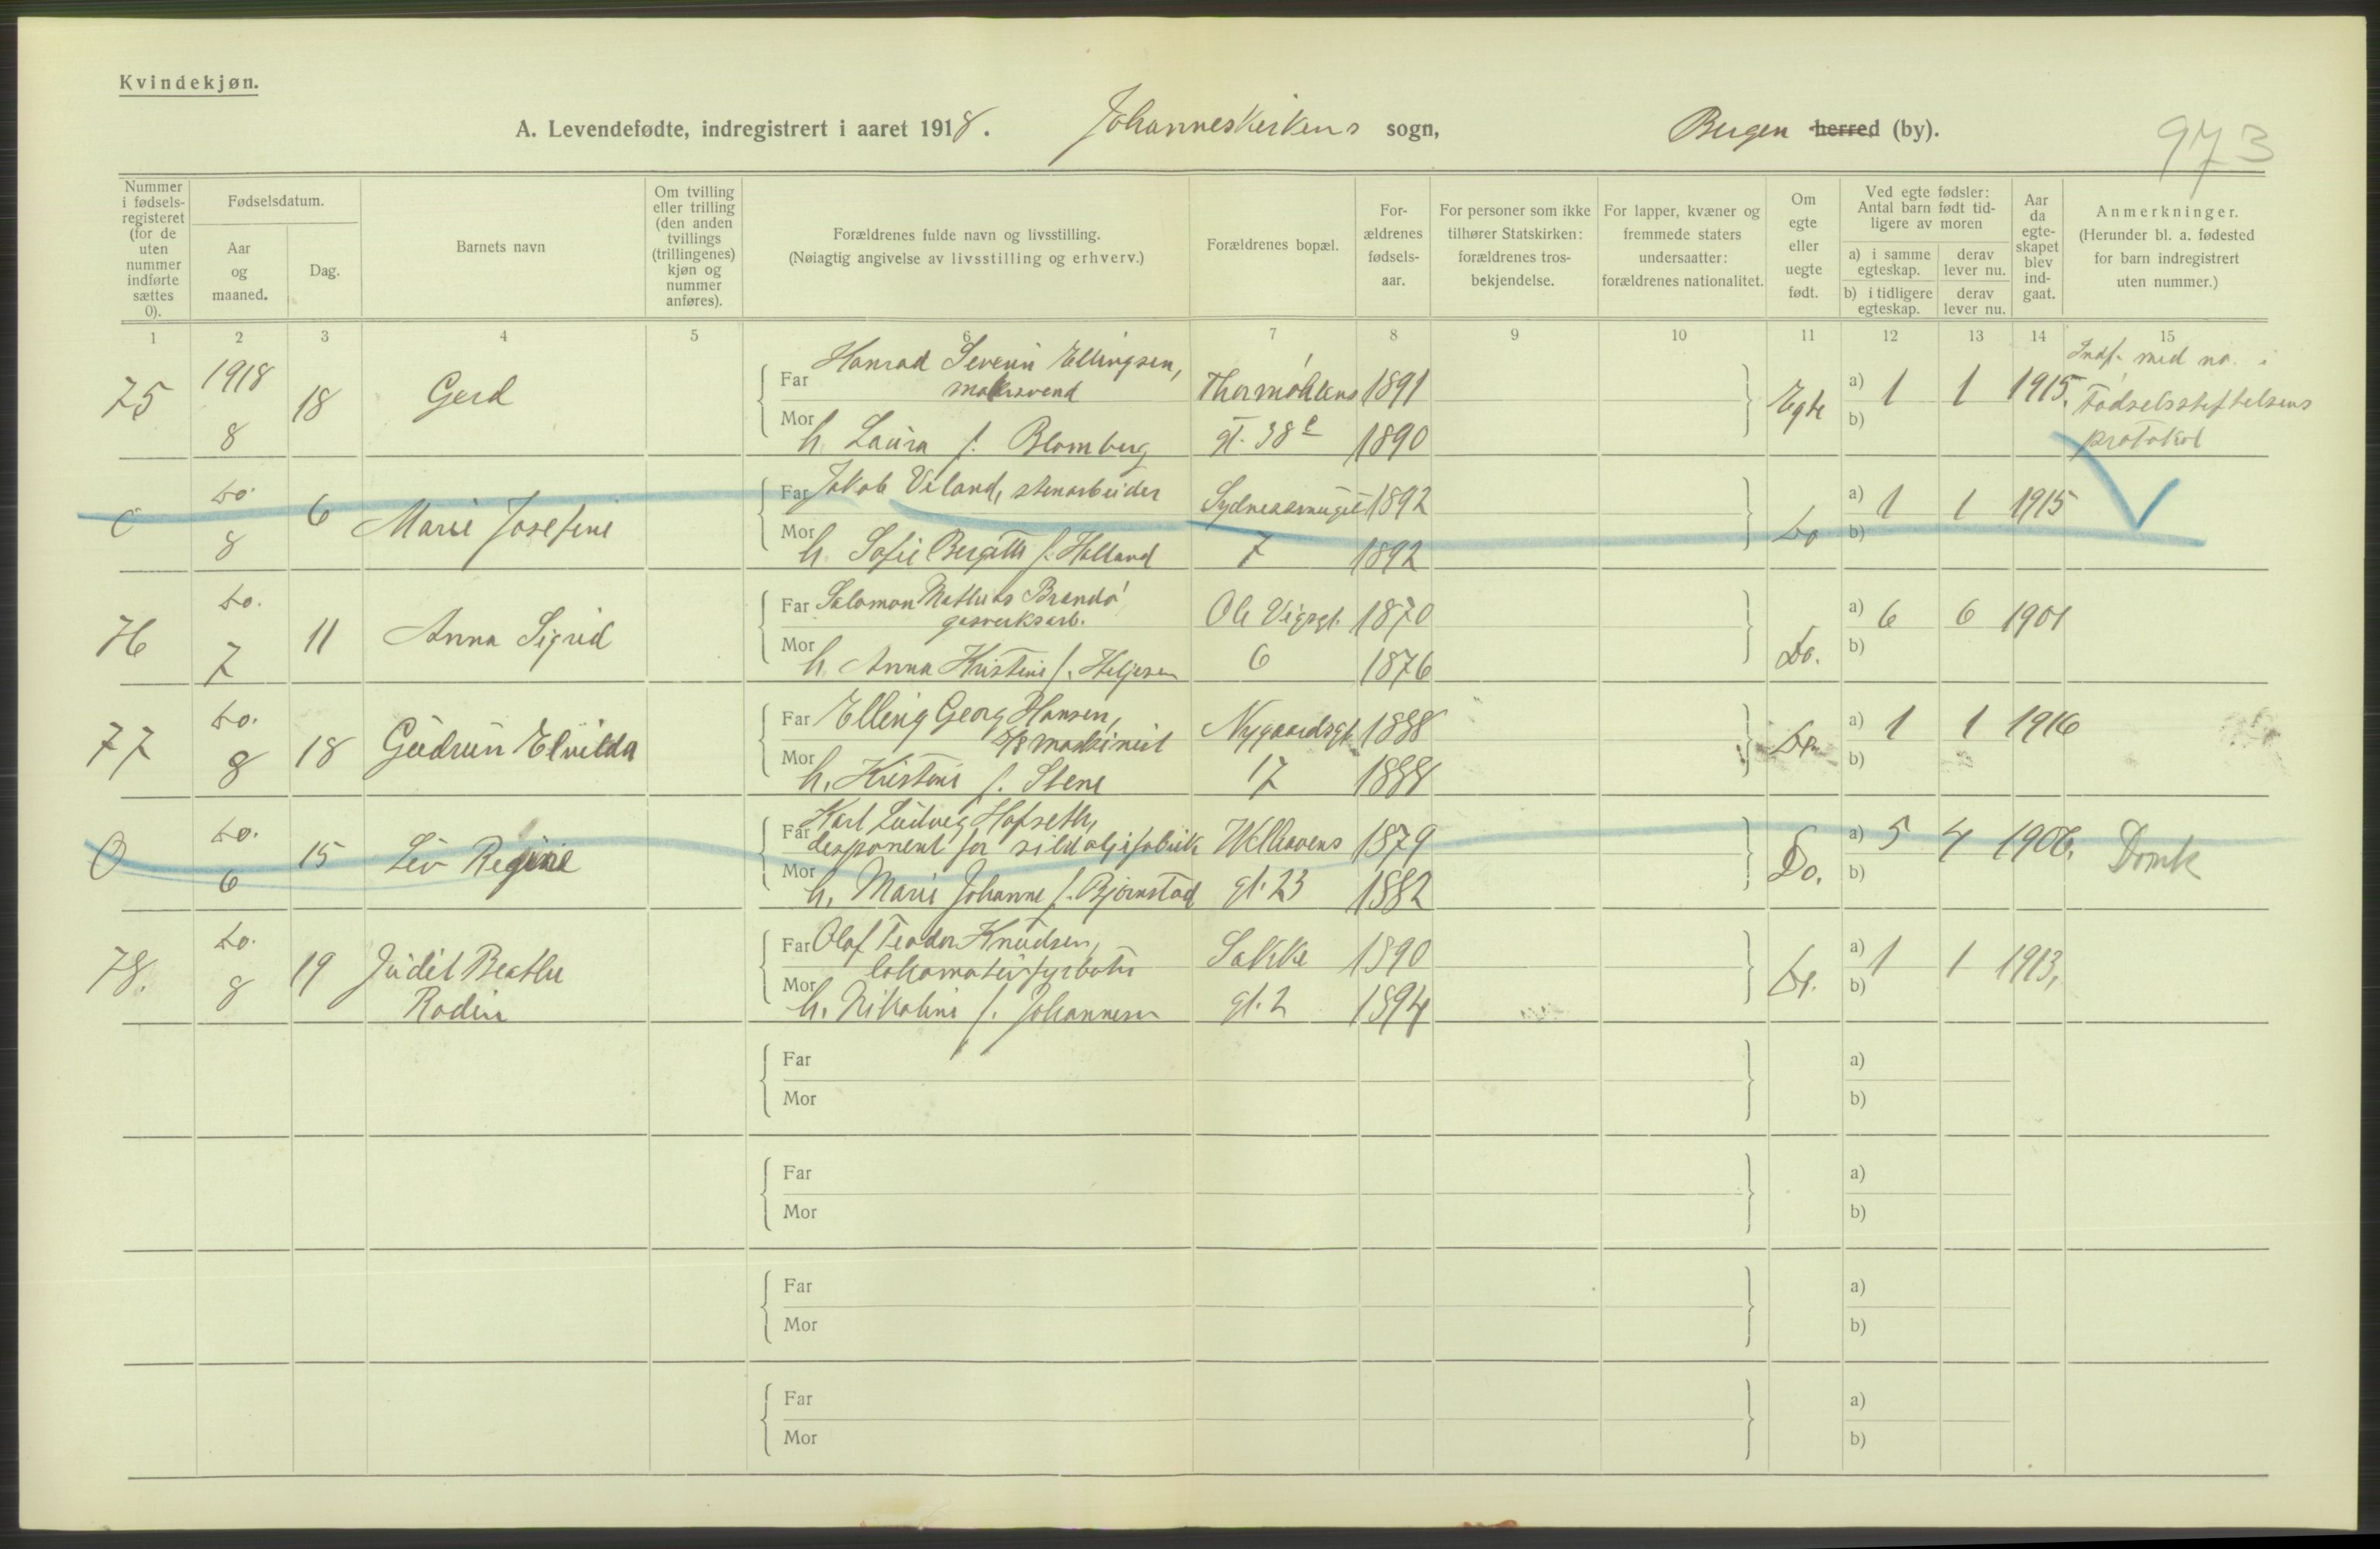 Kvindekjøn.
A. Levendefødte, indregistrert i aaret 1918. Johanneskirkens sogn, Bergen herred (by).
973
Nummer i fødselsregisteret (for de uten nummer indførte sættes 0).
Fødselsdatum.
Aar og maaned.
Dag.
Barnets navn
Om tvilling eller trilling (den anden tvillings (trillingenes) kjøn og nummer anføres).
Forældrenes fulde navn og livsstilling.
(Nøiagtig angivelse av livsstilling og erhverv.)
Forældrenes bopæl.
For-ældrenes fødsels-aar.
For personer som ikke tilhører Statskirken: forældrenes tros-bekjendelse.
For lapper, kvæner og fremmede staters undersaatter: forældrenes nationalitet.
Om egte eller uegte født.
Ved egte fødsler: Antal barn født tid-ligere av moren
a) i samme egteskap.
derav lever nu.
b) i tidligere egteskap.
derav lever nu.
Aar da egte-skapet blev ind-gaat.
Anmerkninger.
(Herunder bl. a. fødested for barn indregistrert uten nummer.)
1 2 3 4 5 6 7 8 9 10 11 12 13 14 15
75 1918 8 18 Gerd
Far Konrad Severin Ellingsen, malersvend
Mor h. Laura f. Blomberg
Thormøhlens gt. 38 c
1891
1890
Egte a) 1 1 1915. b)
Indf. med no. i Fødselsstiftelsens protokol
0 Do. 8 6 Marie Josefine
Far Jakob Veland, stenarbeider
Mor h. Sofie Bergitte f. Helland
Sydnessmuget 7
1892
1892
Do a) 1 1 1915 b)
76 Do. 7 11 Anna Sigrid
Far Salomon Mathias Brandø gasverksarb.
Mor h. Anna Kristine f. Heljesen
Ole Vigsgt. 6
1870
1876
Do. a) 6 6 1901 b)
77 Do. 8 18 Gudrun Elvilda
Far Elling Georg Hansen, D/S maskinist
Mor h. Kristine f. Stene
Nygaardsgt. 17
1888
1888
Do. a) 1 1 1916 b)
0 Do. 6 15 Liv Regine
Far Karl Ludvig Hofseth, disponent for sildoljefabrik
Mor h. Marie Johanne f. Bjørnstad
Welhavens gt. 23
1879
1882
Do. a) 5 4 1906. b)
Domk
78. Do. 8 19 Judit Beathe Rodin
Far Olaf Teodor Knudsen, lokomotivfyrbøter
Mor h. Nikoline f. Johannesen
Sakke gt. 2
1890
1894
Do. a) 1 1 1913. b)
Far a)
Mor b)
Far a)
Mor b)
Far a)
Mor b)
Far a)
Mor b)